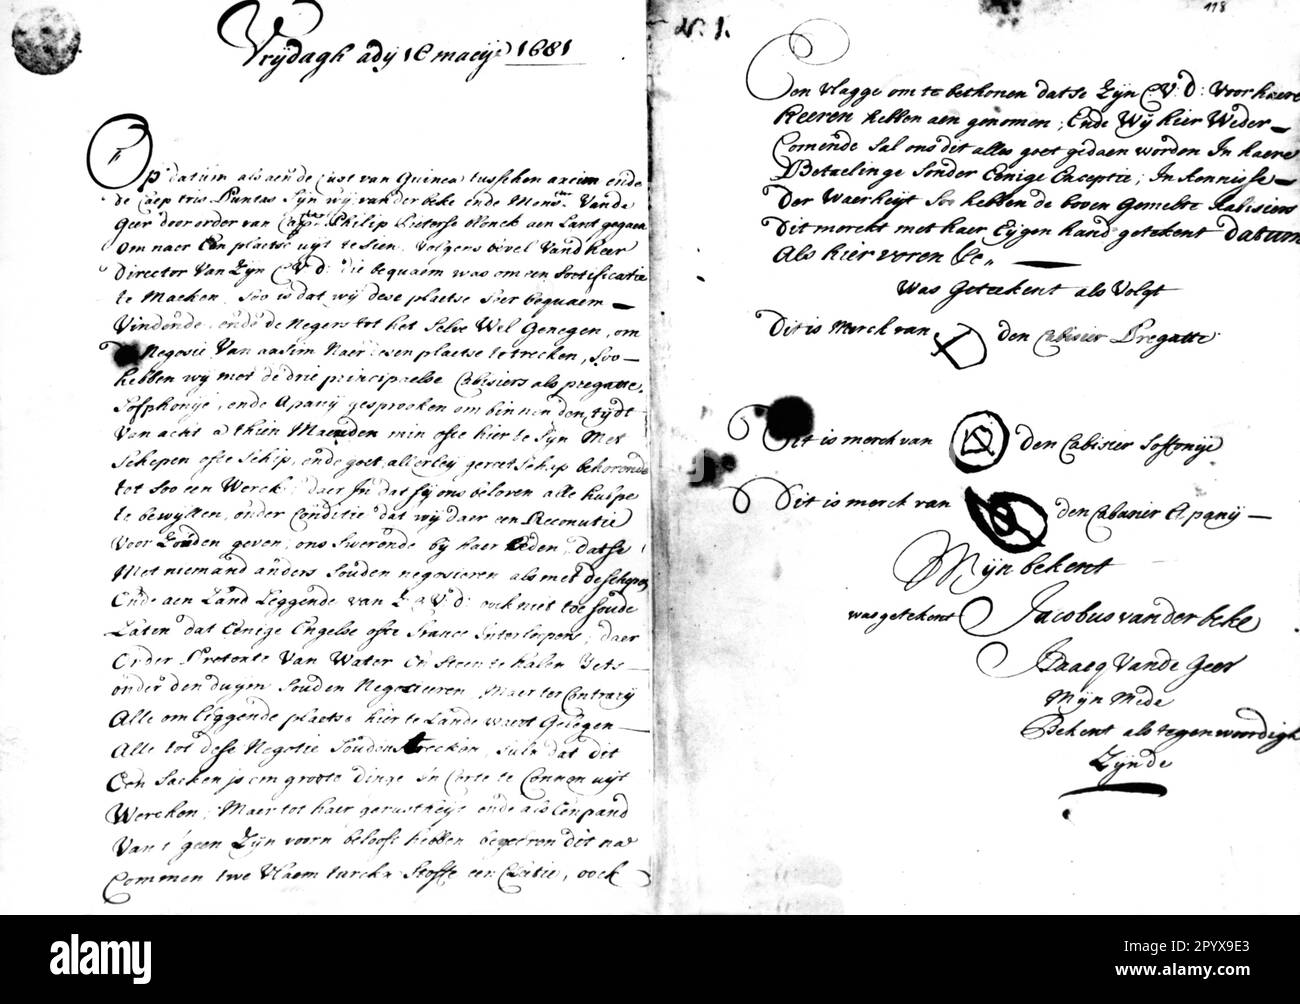 Vrijdagh adij 16 maeije 1681
Op datum als aen de Cust van Guinea tusschen axiem ende
de Caep tris Puntas Sijn wij van der beke ende Mons. Vande
Geer door order van Capn. Philip Pieterse Blonck aen Landt gegaen
om naer Een plaetse uijt te Sien, volgens bevel vand heer
Director van Zijn C.V.D: die bequaem was om een Fortificatie
te Maeken. Soo is dat wij dese plaetse Seer bequaem
Vindende, ende de Negers tot het Selve Wel Genegen, om
de Negosie van aaxiem Naer desen plaetse te trecken, Soo
hebben wij met de drie principaelse Cabisiers als pregatte,
Sofphonije, ende Apanij gesprooken om binnen den tijdt
Van acht a thien Maenden min ofte hier te Sijn Met
Schepen ofte Schip, ende goet allerleij gereetschip behorende
tot Soo een Werck: daer In dat sij ons beloven alle hulpe
te bewijsen, onder Conditie dat wij daer een Reconutie
voor Zouden geven, ons Swerende bij haer Eeden, datse
Met niemand anders Souden negosieren als met de schepen
Ende aen Land Leggende van Z.C.V.D: ock niet toe soude
Laten dat Eenige Engelse ofte France Interlopens, daer
Onder Pretentie van Water En Steen te halen Iets
onder den duijm Souden Negosieeren, Maer ter Contrarij
Alle om liggende plaetse hier te Lande waert Gelegen
Alle tot dese Negotie Souden trecken, Sulx dat dit
Een Sacken is om groote dinge in Corte te Connen uijt
Wercken, Maer tot haer gerustheijt ende als Een pand
Van t' geen Zijn voorn beloofte hebben begeeren dit na
Commen twe Vlaem turcks Stoffe een Citie, ock
N. 1.
118
Een vlagge om te bethonen dat se Zijn C:V:D: Voor haere
Heeren hebben aen genomen, Ende Wij hier Weder
Comende Sal ons dit alles goet gedaen worden In haere
Betaelinge Sonder Eenige Exceptie, In Kennisse
Der Waerheijt Soo hebben de boven Gemelte Kabisiers
Dit merckt met haer Eijgen hand getekent datum
Als hier voren &c.
Was Geteekent als Volgt
Dit is Merck van den Cabisier Pregatte
Dit is merck van den Cabisier Sofonije
Dit is merck van den Cabisier Apanij
Mijn bekent
was getekent Jacobus van der beke
Isaacq Vande Geer
Mijn Mede
Bekent als tegenwoordigh
Zijnde
alamy
Image ID: 2PYX9E3
www.alamy.com